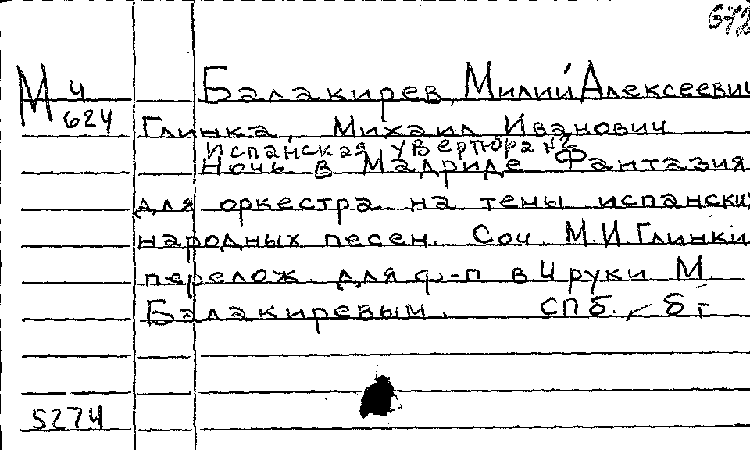 672
М 4 Балакирев, Милий Алексеевич
624 Глинка, Михаил Иванович
Испанская увертюра №2
Ночь в Мадриде. Фантазия
для оркестра на темы испанских
народных песен. Соч. М.И.Глинки
перелож. для ф.-п в 4 руки М.
Балакиревым. СПб., б г
5274